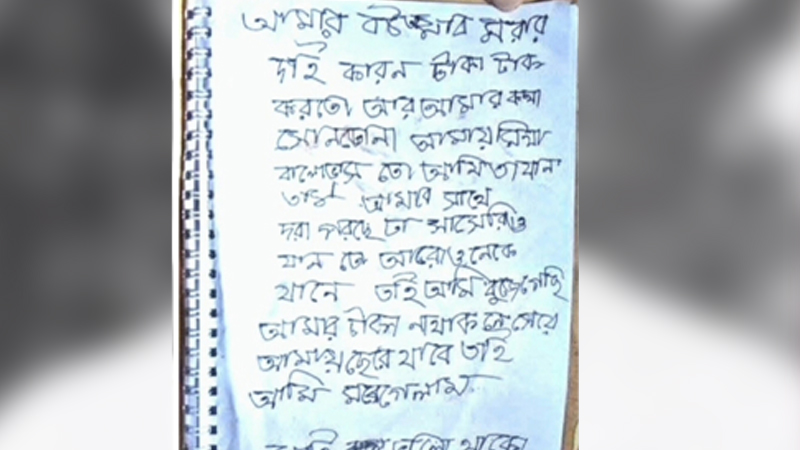 আমার বউ আমার মরার
দাই কারন টাকা টাক
করতো আর আমার কথা
সোনতোনা আমায় মিথ্যা
তো আমি তা যান
আমার সাথে
দরা পরছে তা সাসেরিও
যান তো আরো
যানে তাই আমি বুজেগেছি
আমার টাকা নথাকলে সেয়ে
আমায় ছেরে যাবে তাই
আমি মরেগেলাম
ভালো থাকো